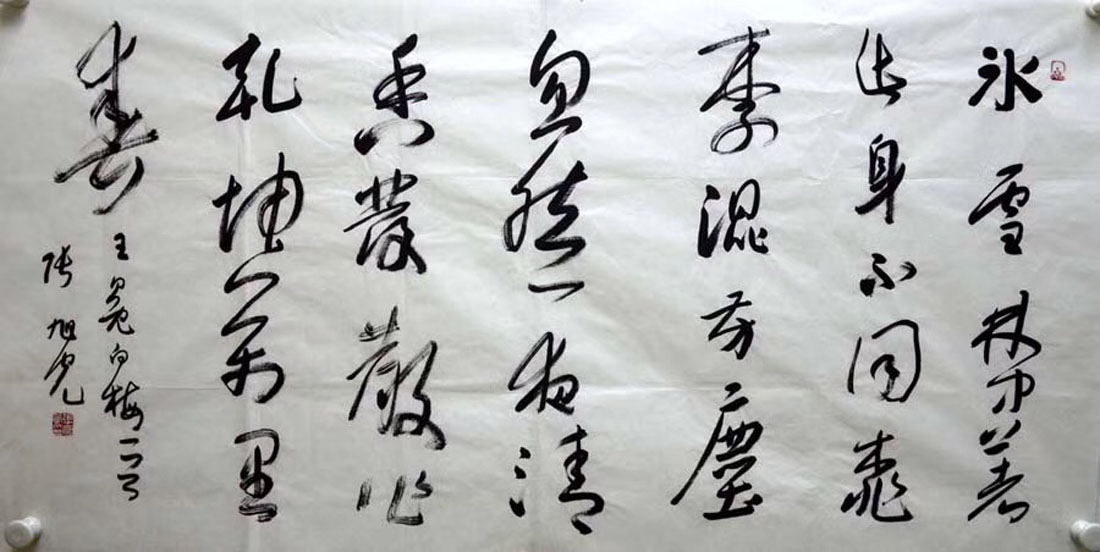 冰雪林中著
此身不同桃
李混芳塵
忽然一夜清
香發散作
乾坤萬里
春
王冕白梅一首
張旭光